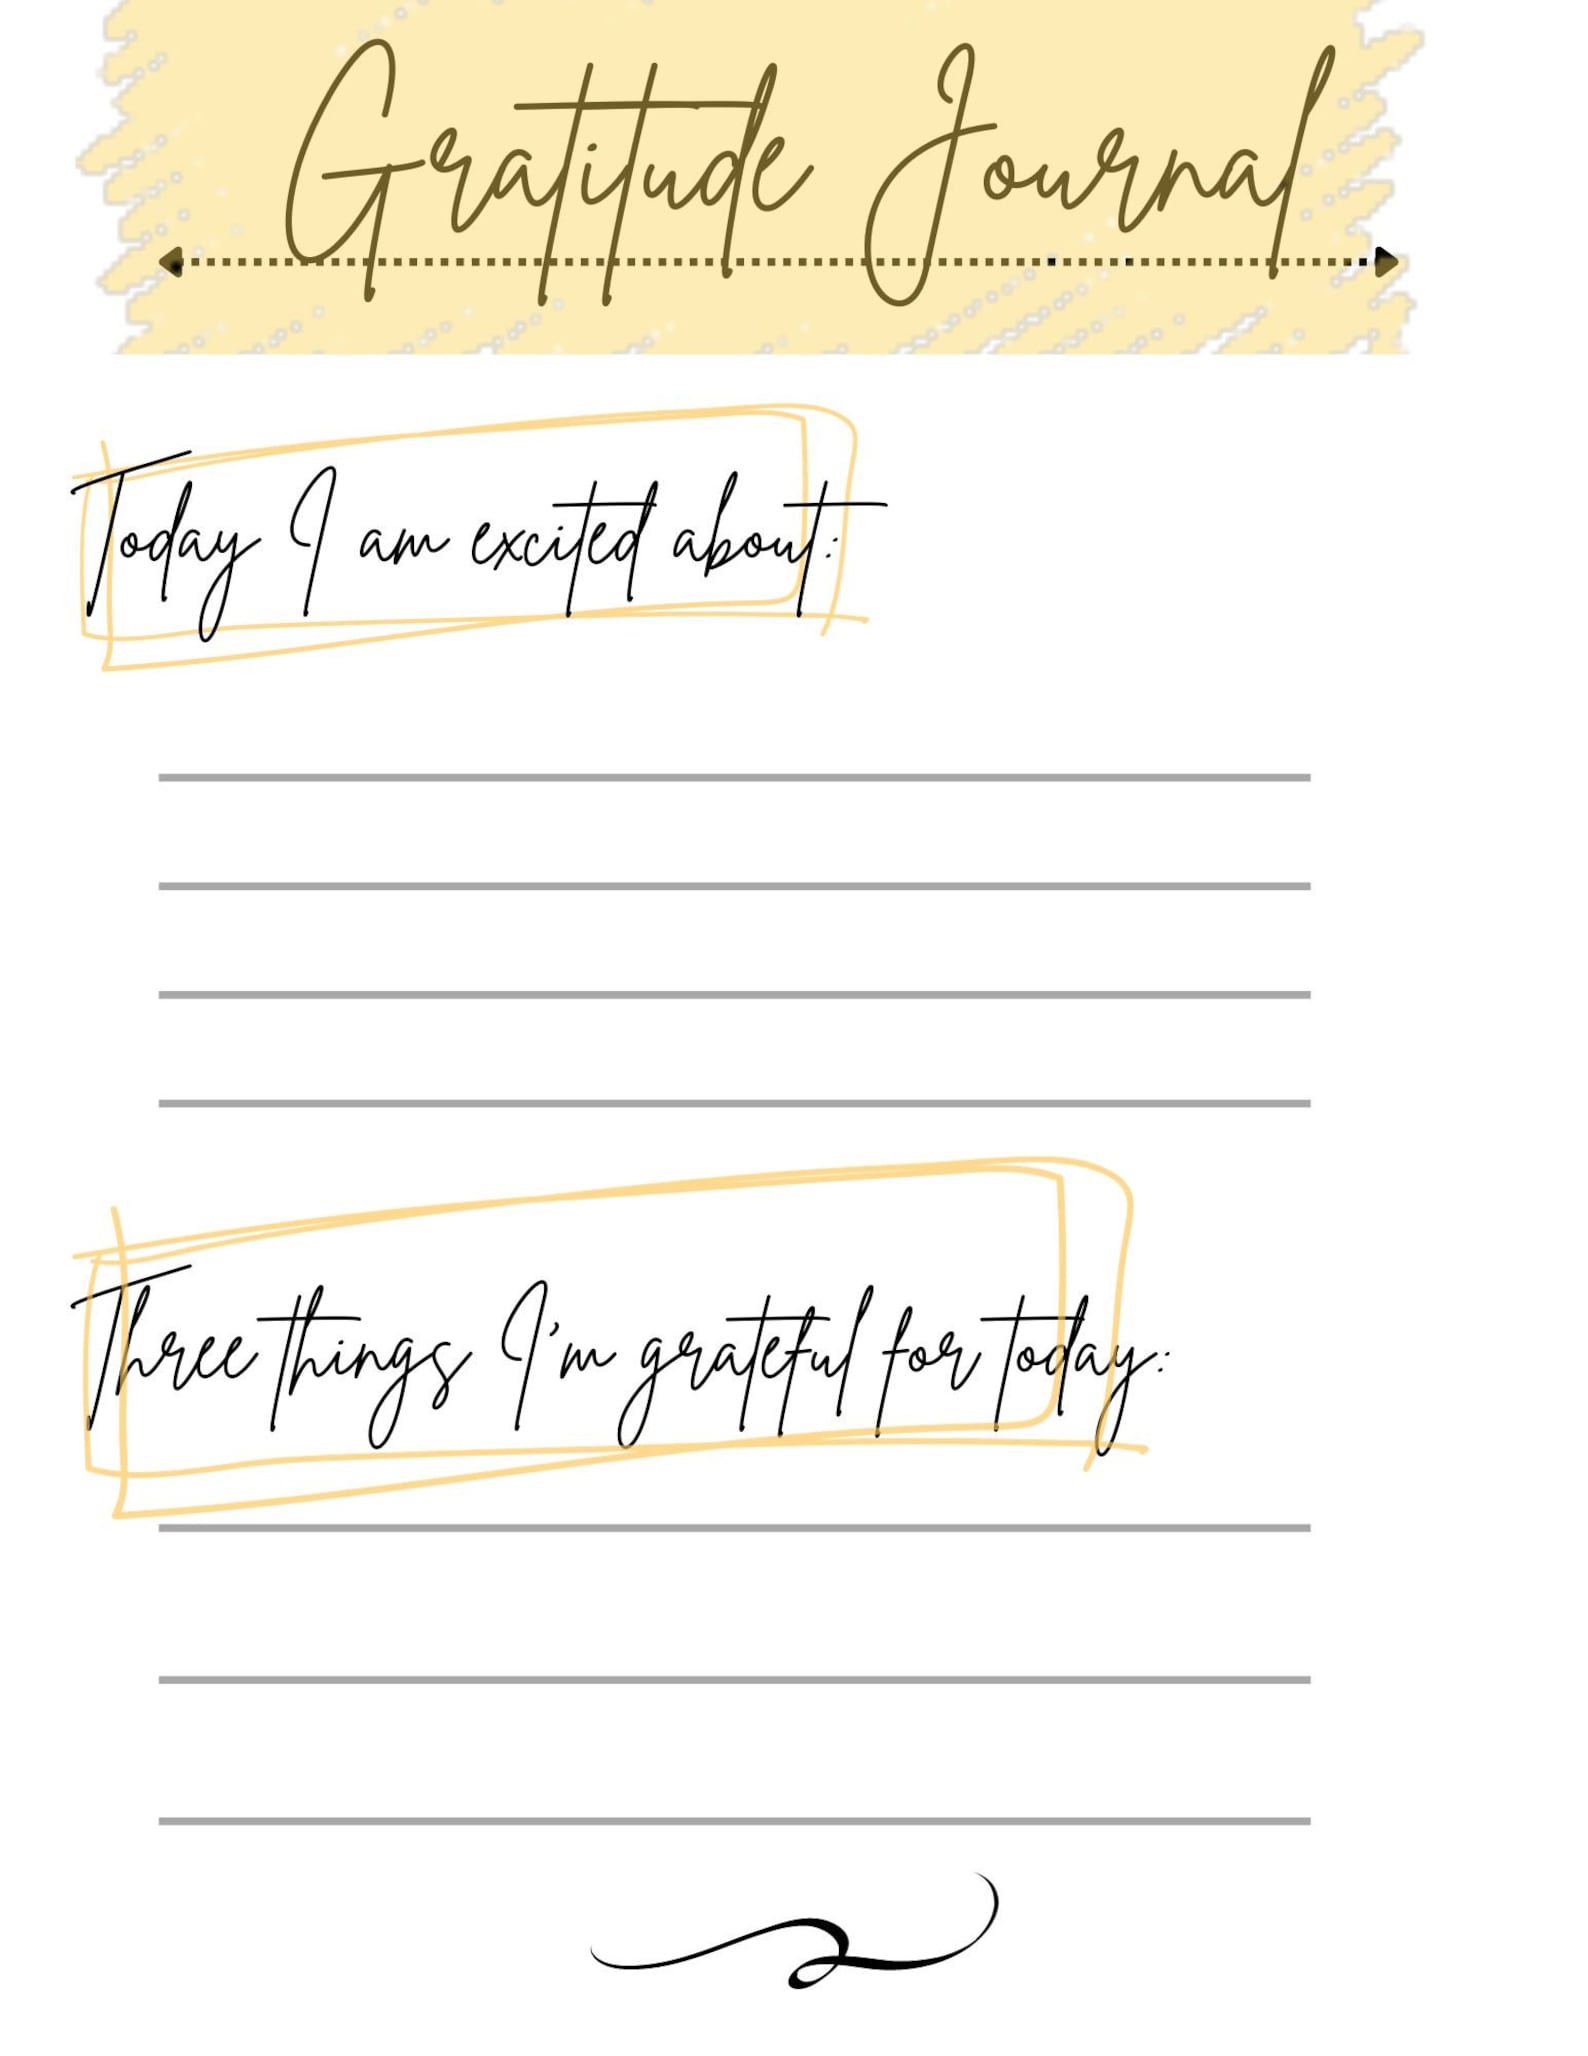 Gratitude Journal
Today I am excited about:
Three things I'm grateful for today: